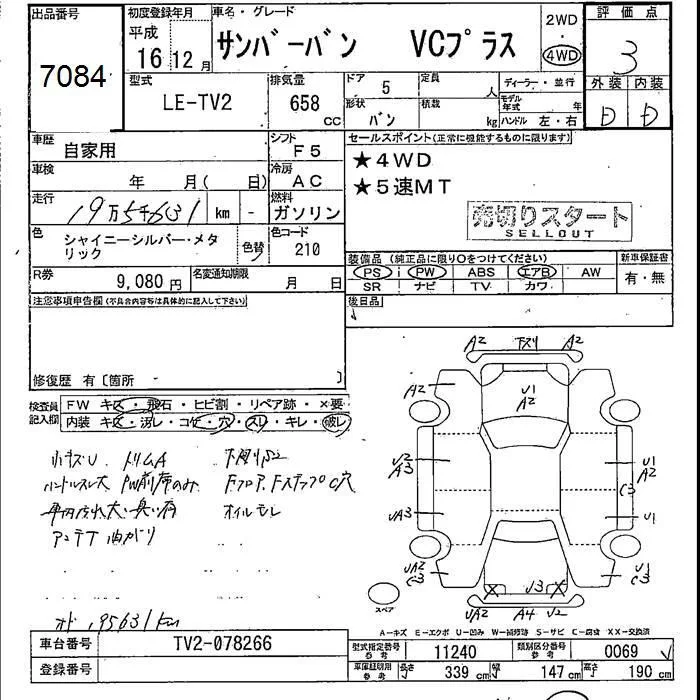 出品番号
7084
初度登録年月
平成
16 12 月
車名・グレード
サンバーバン VCプラス
2WD
・
4WD
評価点
3
外装 内装
D D
型式
LE-TV2
排気量
658 cc
ドア 5
定員 人
形状 バン
積載 kg
ディーラー・並行
モデル年式 年
ハンドル 左・右
車歴 自家用
シフト F5
車検 年 月( 日)
冷房 AC
走行 19万5千631 km -
燃料 ガソリン
色 シャイニーシルバー・メタリック
色替
色コード 210
R券 9,080 円
名変通知期限 月 日
セールスポイント(正常に機能するものに限ります)
★4WD
★5速MT
売切りスタート
SELLOUT
装備品 (純正品に限り○をつけてください)
PS PW ABS エアB AW
SR ナビ TV カワ
新車保証書
有・無
後日品
注意事項申告欄(不具合内容等は具体的に記入して下さい)
修復歴 有〔箇所 〕
検査員記入欄
FW キズ・飛石・ヒビ割・リペア跡・×要
内装 キズ・汚レ・コゲ・穴・スレ・キレ・破レ
小キズU ドリムA 下廻りS2
ハンドルスレ大 PW前席のみ
車内汚れ大・臭い有 オイルモレ
アンテナ曲がり
A2 下スリ A2
A2 U1
A2
U2
A3
U1
A2
C3
UA3 U1
UA2
C3
U3
U1
C3
UA2 A4 U2
スペア
A-キズ E-エクボ U-凹み W-補修跡 S-サビ C-腐食 XX-交換済
オド 195631km
車台番号 TV2-078266
登録番号
型式指定番号 参考 11240
類別区分番号 参考 0069
車庫証明用 参考 長さ 339 cm 幅 147 cm 高さ 190 cm